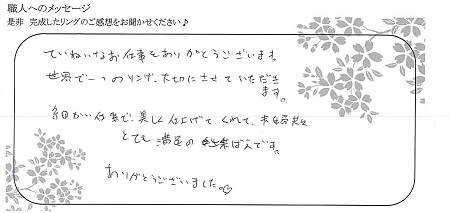 職人へのメッセージ
是非 完成したリングのご感想をお聞かせください♪
ていねいなお仕事をありがとうございます。
世界で一つのリング、大切にさせていただき
ます。
細かい仕事で、美しく仕上げてくれて、
とても満足の ばんです。
ありがとうございました♡